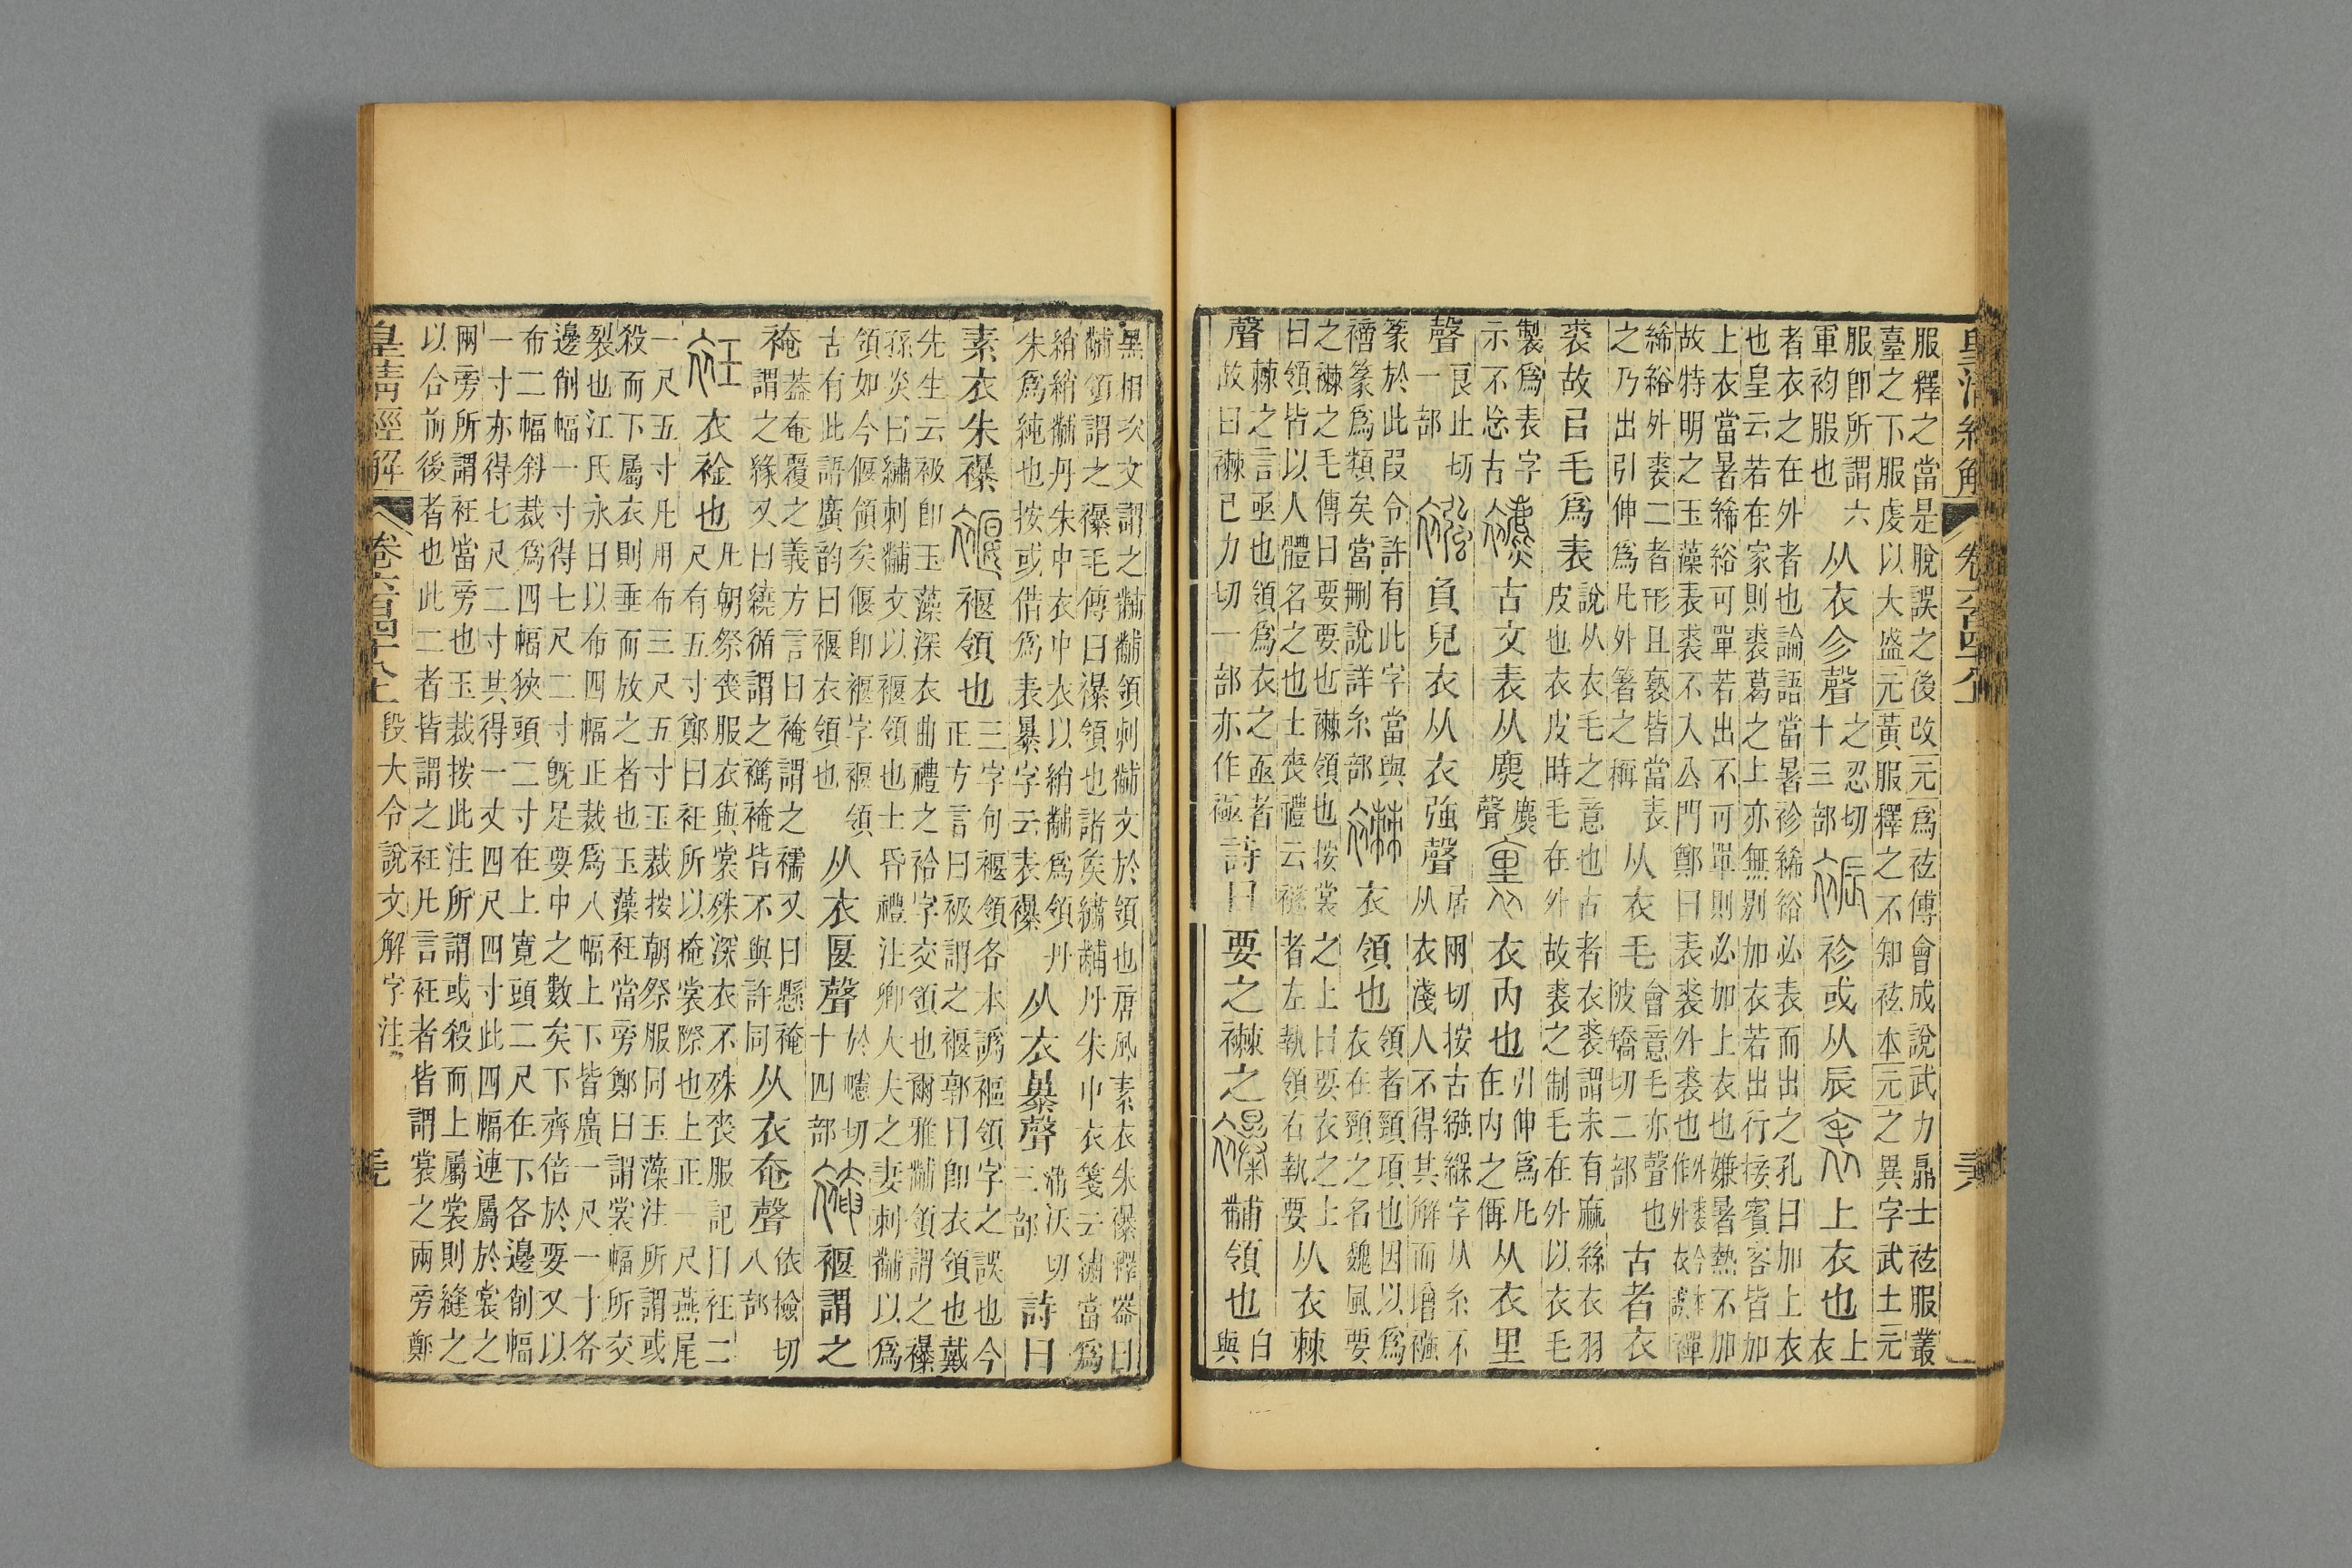 皇清經解 卷六百四十八上 天
服釋之當是脫誤之後改元爲袨傅會成說武力鼎士袨服叢
臺之下服虔以大盛元黃服釋之不知袨本元之異字武士元
服卽所謂六軍袀服也 从衣㐱聲 之忍切十三部 袗或从辰 上衣也 上衣
者衣之在外者也論語當暑袗絺綌必表而出之孔曰加上衣
也皇云若在家則裘葛之上亦無別加衣若出行接賓客皆加
上衣當暑絺綌可單若出不可單則必加上衣也嫌暑熱不加
故特明之玉藻表裘不入公門鄭曰表裘外裘也
絺綌外裘二者形且褻皆當表之乃出引伸爲凡外箸之稱 从衣毛 會意毛亦聲也陂矯切二部 古者衣
裘故㠯毛爲表 說从衣毛之意也古者衣裘謂未有麻絲衣羽皮也衣皮時毛在外故裘之制毛在外以衣毛
製爲表字示不忘古 古文表从麃 麃聲 衣內也 引伸爲凡在內之偁 从衣里
聲 良止切一部 負兒衣从衣強聲 居兩切按古繈緥字从糸不从衣淺人不得其解而增襁
篆於此叚令許有此字當與襘篆爲類矣當刪說詳糸部 衣領也 領者頸項也因以爲衣在頸之名魏風要
之襋之毛傳曰要要也襋領也按裳之上曰要衣之上曰領皆以人體名之也士喪禮云襚者左執領右執要 从衣棘
聲 棘之言亟也領爲衣之亟者故曰襋己力切一部亦作極 詩曰要之襋之 黼領也 白與
黑相次文謂之黼黼領刺黼文於領也唐風素衣朱襮釋器曰
黼領謂之襮毛傳曰襮領也諸矦繡黼丹朱中衣箋云繡當爲
綃綃黼丹朱中衣中衣以綃黼爲領丹朱爲純也按或借爲表暴字云表襮 从衣暴聲 蒲沃切三部 詩曰
素衣朱襮 褗領也 三字句褗領各本譌褔領字之誤也今正方言曰衱謂之褗郭曰卽衣領也戴
先生云衱卽玉藻深衣曲禮之袷字交領也爾雅黼領謂之襮
孫炎曰繡刺黼文以褗領也士昏禮注卿大夫之妻刺黼以爲
領如今偃領矣偃卽褗字褗領古有此語廣韵曰褗衣領也 从衣匽聲 於幰切十四部 褗謂之
裺 葢奄覆之義方言曰裺謂之襦又曰懸裺謂之緣又曰繞循謂之襪裺皆不與許同 从衣奄聲 依檢切八部
衣䘳也 凡朝祭喪服衣與裳殊深衣不殊喪服記曰衽二尺有五寸鄭曰衽所以掩裳際也上正一尺燕尾
一尺五寸凡用布三尺五寸玉裁按朝祭服同玉藻注所謂或
殺而下屬衣則垂而放之者也玉藻衽當旁鄭曰謂裳幅所交
裂也江氏永曰以布四幅正裁爲八幅上下皆廣一尺一寸各
邊削幅一寸得七尺二寸旣足要中之數矣下齊倍於要又以
布二幅斜裁爲四幅狹頭二寸在上寬頭二尺在下各邊削幅
一寸亦得七尺二寸其得一丈四尺四寸此四幅連屬於裳之
兩旁所謂衽當旁也玉裁按此注所謂或殺而上屬裳則縫之
以合前後者也此二者皆謂之衽凡言衽者皆謂裳之兩旁鄭
皇清經解 卷六百四十八上 段大令說文解字注